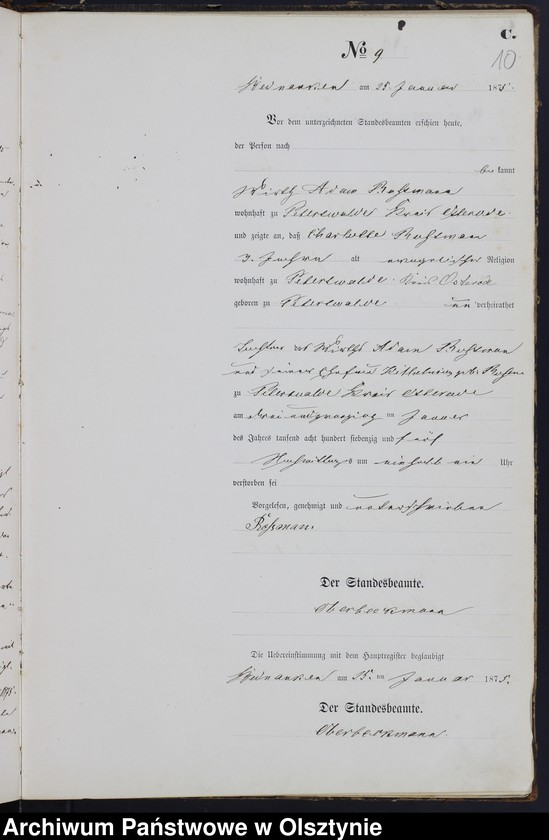 C.
10
No 9
am 25. Januar 1875.
Vor dem unterzeichneten Standesbeamten erschien heute,
der Person nach
be kannt
Wirth Adam
wohnhaft zu Peterswalde Kreis Osterode
und zeigte an, daß Charlotte
3. Jahre alt evangelischer Religion
wohnhaft zu Peterswalde Kreis Osterode
geboren zu Peterswalde un verheirathet
Tochter des Wirths Adam
und seiner Ehefrau
zu Peterswalde Kreis Osterode
am drei und zwanzig ten Januar
des Jahres tausend acht hundert siebenzig und fünf
Nachmittags um ein halb ein Uhr
verstorben sei
Vorgelesen, genehmigt und unterschrieben
Der Standesbeamte.
Oberbeckmann
Die Uebereinstimmung mit dem Hauptregister beglaubigt
am 25. ten Januar 1875.
Der Standesbeamte.
Oberbeckmann.
Archiwum Państwowe w Olsztynie